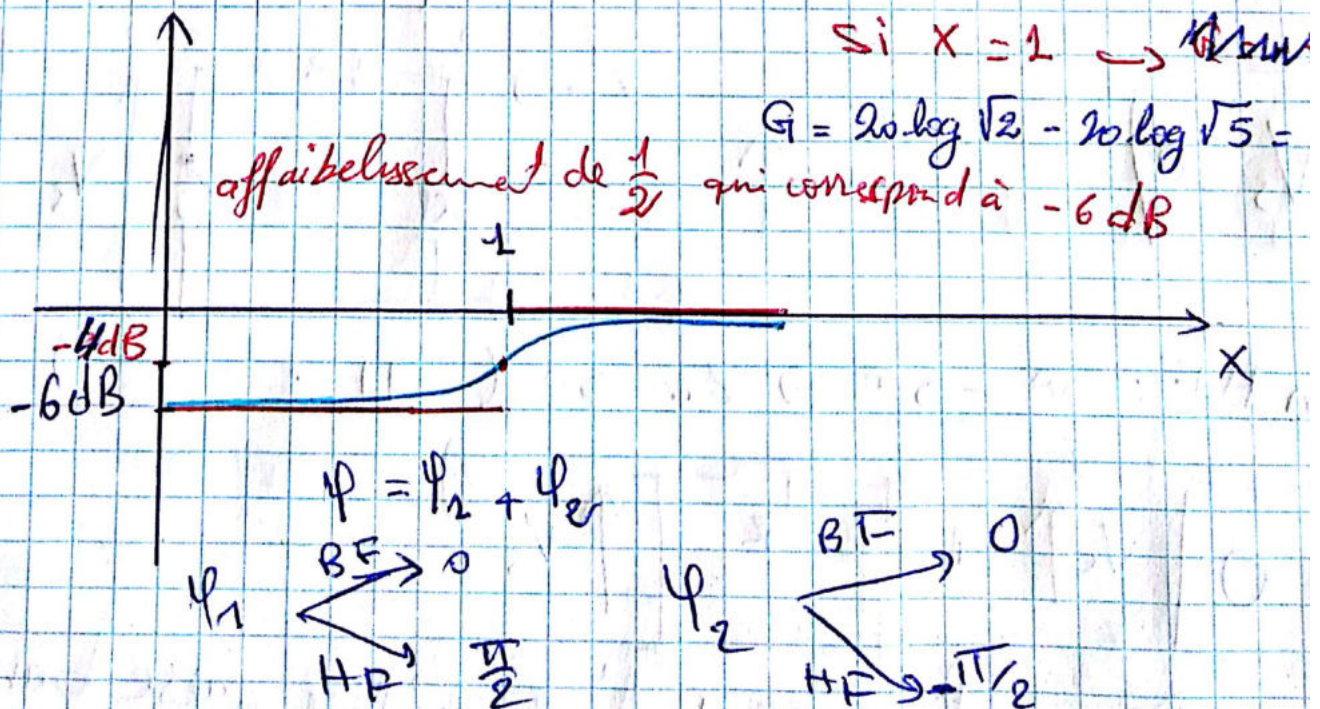 Si X = 1 →
G = 20 log √2 - 20 log √5 =
affaibelussement de 1/2 qui correspond à - 6 dB
1
-4dB
X
-6dB
φ = φ1 + φ2
φ1 BF → 0
HF → π/2
φ2 BF → 0
HF → -π/2